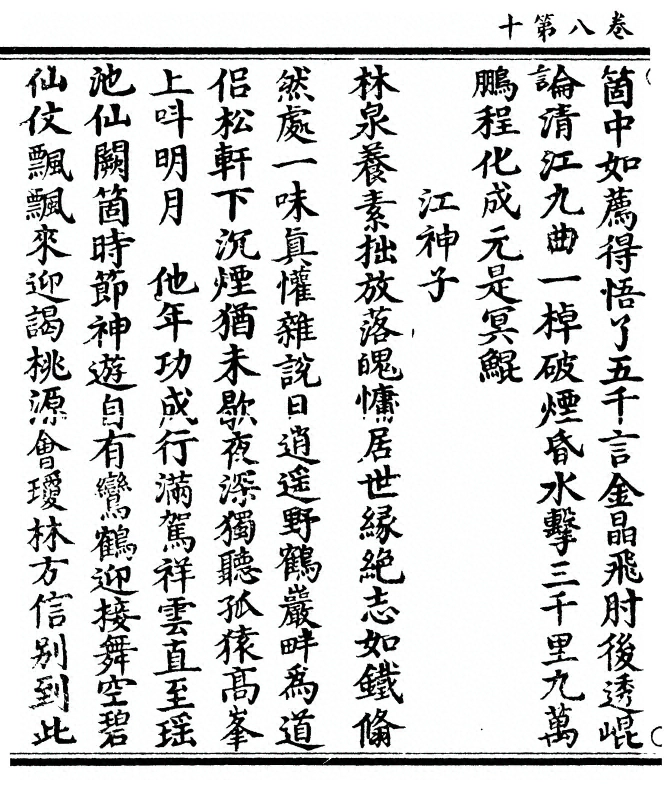 卷八第十
箇中如薦得悟了五千言金晶飛肘後透崐
論清江九曲一棹破煙昏水擊三千里九萬
鵬程化成元是冥鯤
江神子
林泉養素拙放落魄慵居世緣絶志如鐵翛
然處一味眞懽雜説日逍遥野鶴巖畔爲道
侣松軒下沉煙猶未歇夜深獨聽孤猿髙峯
上呌明月　他年功成行滿駕祥雲直至瑶
池仙闕箇時節神遊自有鸞鶴迎接舞空碧
仙仗飄飄來迎謁桃源會瓊林方信别到此